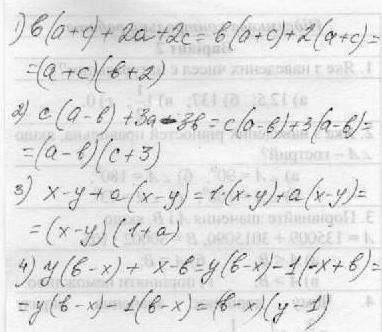 1) в(a+c)+2a+2c=в(a+c)+2(a+c)=
=(a+c)(в+2)
2) c(a-в)+3a-3в=c(a-в)+3(a-в)=
=(a-в)(c+3)
3) x-y+a(x-y)=1·(x-y)+a(x-y)=
=(x-y)(1+a)
4) y(в-x)+x-в=y(в-x)-1(-x+в)=
=y(в-x)-1(в-x)=(в-x)(y-1)